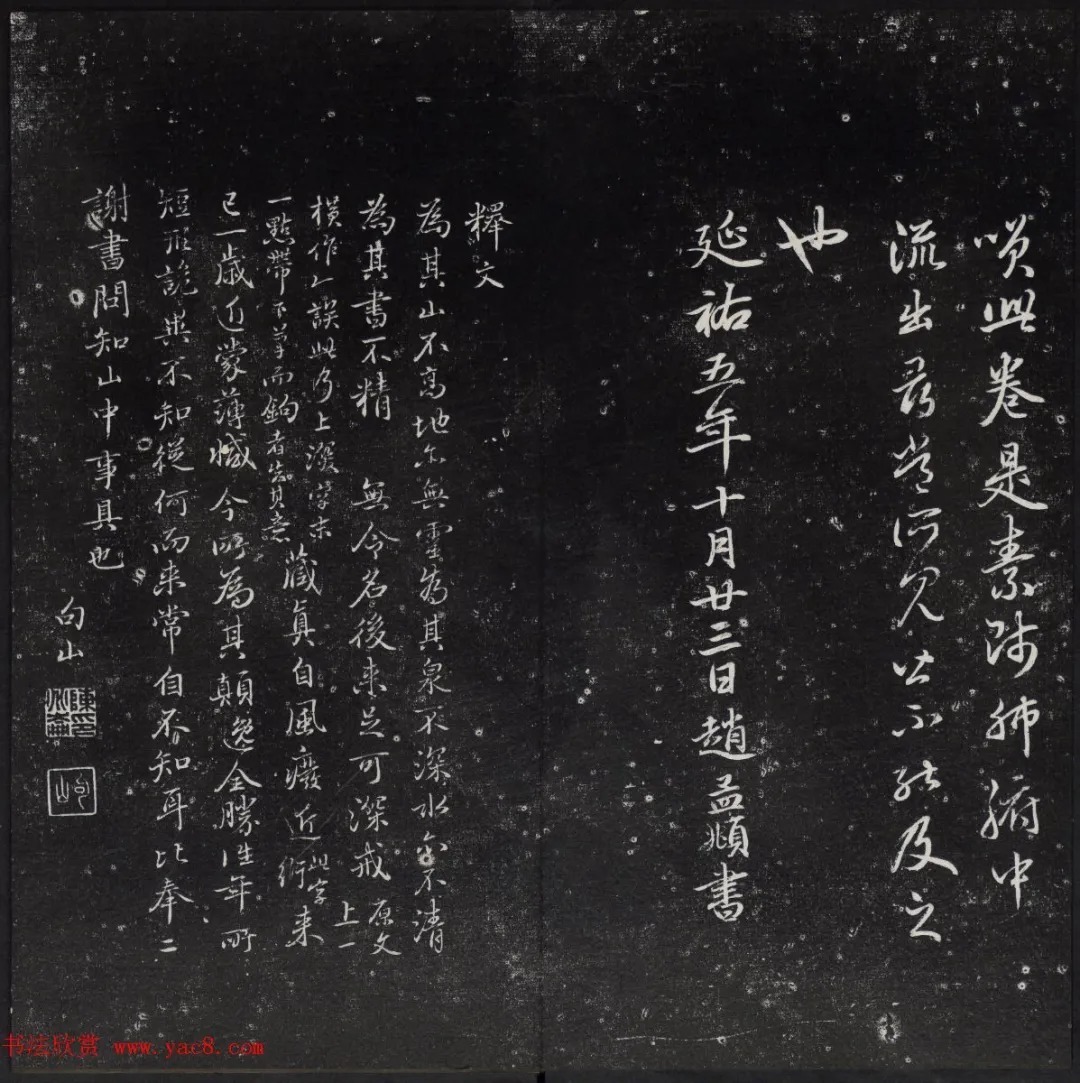 嘆此卷是素師肺腑中
流出尋常所見皆不能及之
也
延祐五年十月廿三日趙孟頫書
釋文
為其山不高地亦無靈為其泉不深水亦不清
為其書不精 無令名後來足可深戒 原文
上一
橫作乙誤此乃上深字末
一點帶下草而鈎者 藏真自風癈近 衍 此字 來
已一歲近蒙薄減今所為其顛逸全勝往年所
短所 與不知從何而來常自不知耳比奉二
謝書問知山中事具也
向山
書法欣賞 www.yac8.com